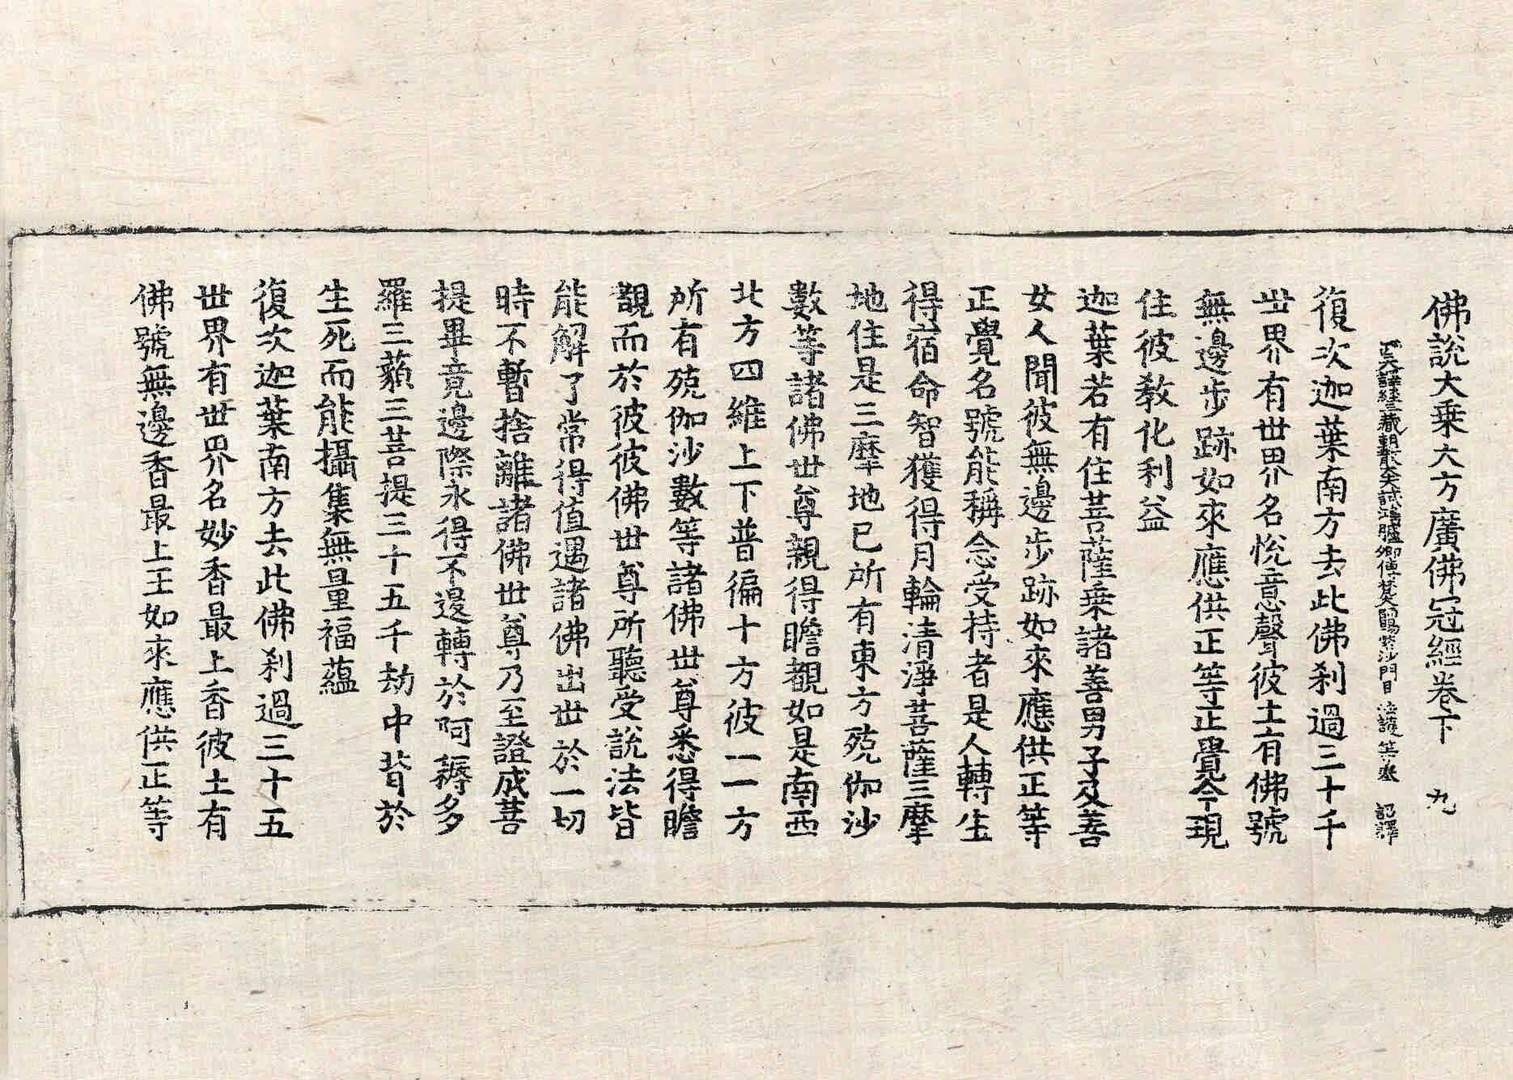 佛說大乗大方廣佛冠經卷下　九
譯經三藏朝散大夫試鴻臚卿傳梵大師賜紫沙門臣法護等奉　詔譯
復次迦葉南方去此佛刹過三十千
世界有世界名悅意聲彼土有佛號
無邊步跡如來應供正等正覺今現
住彼教化利益
迦葉若有住菩薩乗諸善男子及善
女人聞彼無邊步跡如來應供正等
正覺名號能稱念受持者是人轉生
得宿命智獲得月輪清淨菩薩三摩
地住是三摩地已所有東方殑伽沙
數等諸佛世尊親得瞻觀如是南西
北方四維上下普徧十方彼一一方
所有殑伽沙數等諸佛世尊悉得瞻
覩而於彼彼佛世尊所聽受說法皆
能解了常得值遇諸佛出世於一切
時不暫捨離諸佛世尊乃至證成菩
提畢竟邊際永得不邊轉於阿耨多
羅三藐三菩提三十五千劫中背於
生死而能攝集無量福蘊
復次迦葉南方去此佛刹過三十五
世界有世界名妙香最上香彼土有
佛號無邊香最上王如來應供正等